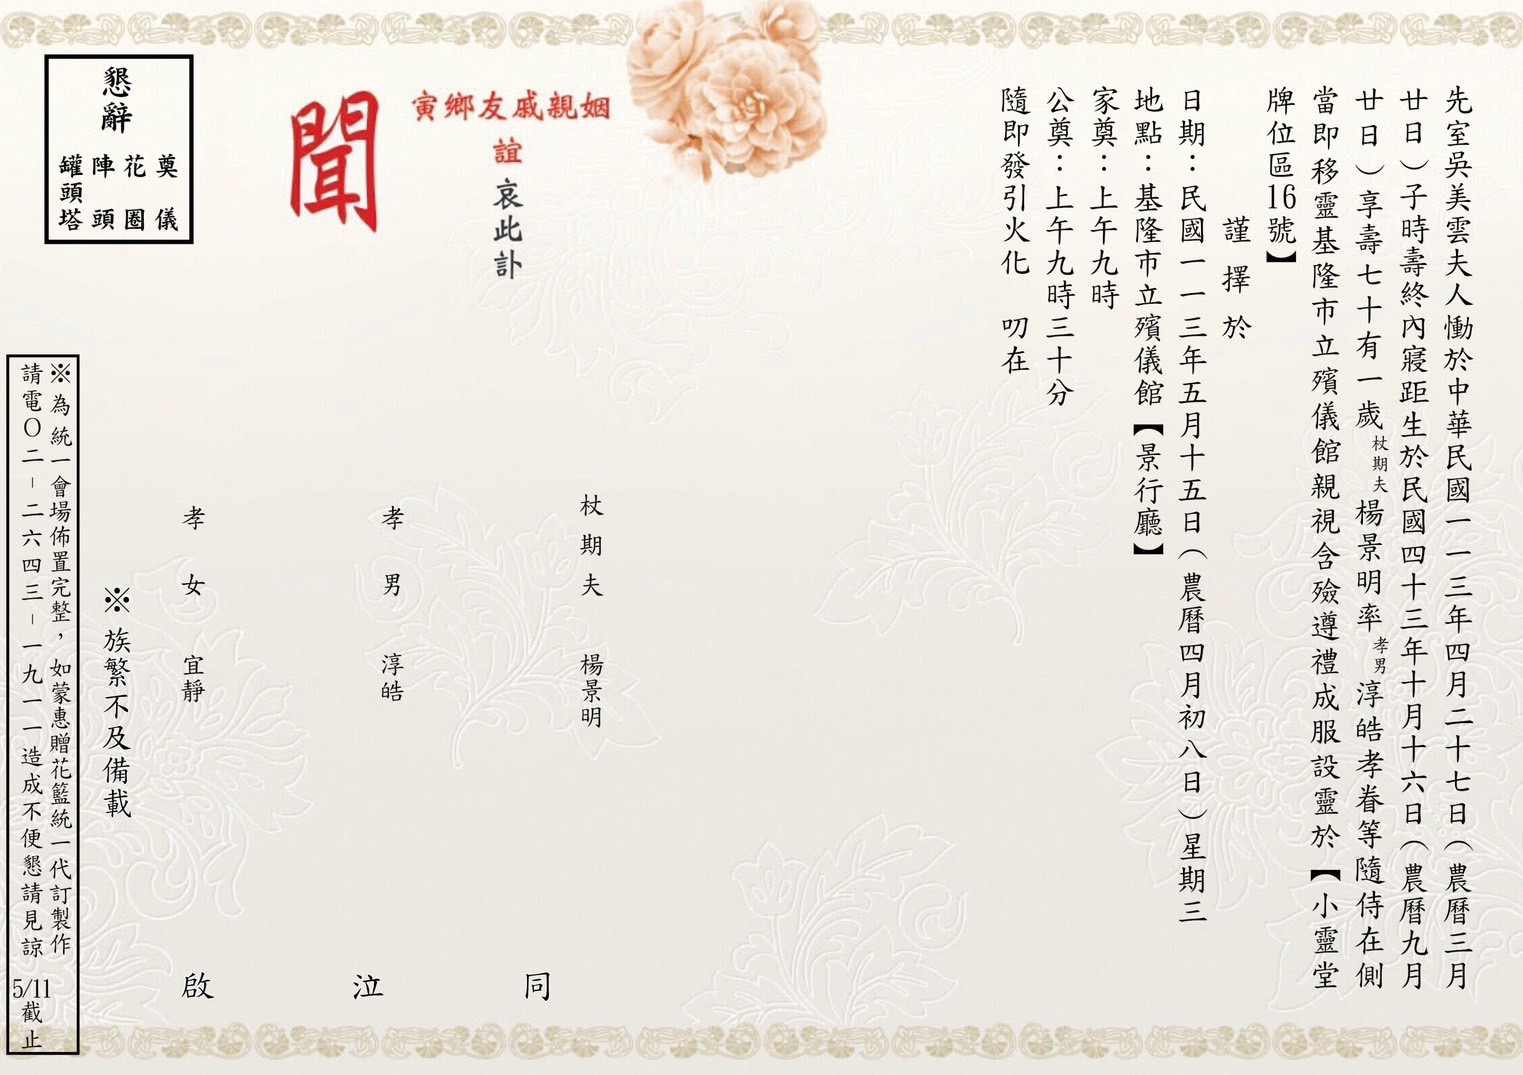 先室吳美雲夫人慟於中華民國一一三年四月二十七日（農曆三月
廿日）子時壽終內寢距生於民國四十三年十月十六日（農曆九月
廿日）享壽七十有一歲杖期夫楊景明率孝男淳皓孝眷等隨侍在側
當即移靈基隆市立殯儀館親視含殮遵禮成服設靈於【小靈堂
牌位區16號】
謹擇於
日期：民國一一三年五月十五日（農曆四月初八日）星期三
地點：基隆市立殯儀館【景行廳】
家奠：上午九時
公奠：上午九時三十分
隨即發引火化　叨在
姻親戚友鄉寅
誼哀此訃
聞
杖期夫　楊景明
孝男　淳皓
孝女　宜靜
同泣啟
※族繁不及備載
懇辭
奠儀
花圈
陣頭
罐頭塔
※為統一會場佈置完整，如蒙惠贈花籃統一代訂製作
請電０二－二六四三－一九一一造成不便懇請見諒 5/11截止